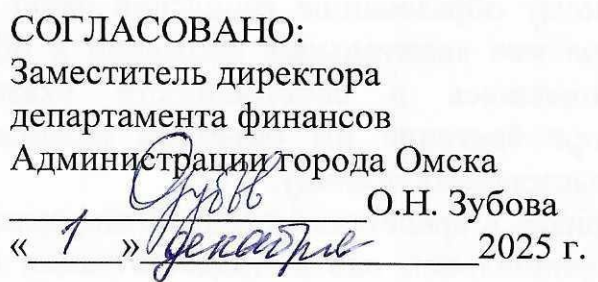 СОГЛАСОВАНО:
Заместитель директора
департамента финансов
Администрации города Омска
О.Н. Зубова
« 1 » декабря 2025 г.